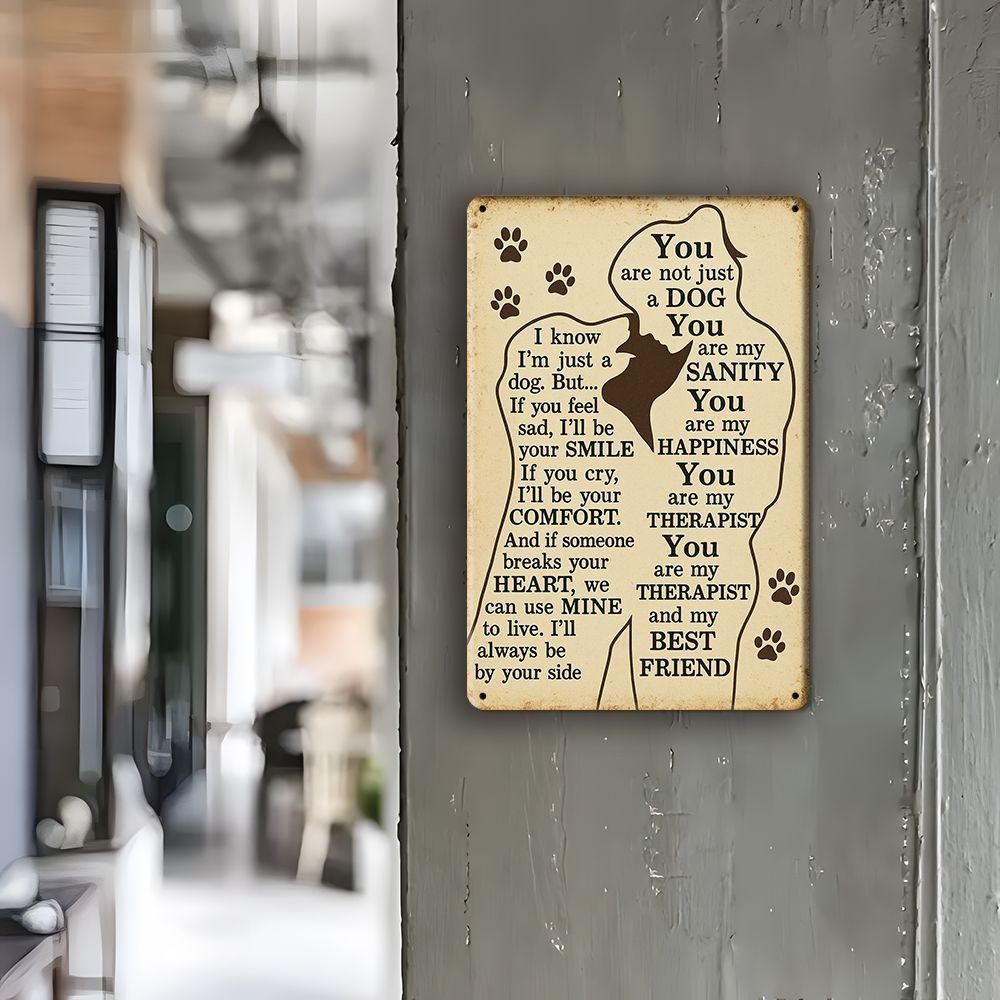 I know
I'm just a
dog. But...
If you feel
sad, I'll be
your SMILE
If you cry,
I'll be your
COMFORT.
And if someone
breaks your
HEART, we
can use MINE
to live. I'll
always be
by your side
You
are not just
a DOG
You
are my
SANITY
You
are my
HAPPINESS
You
are my
THERAPIST
You
are my
THERAPIST
and my
BEST
FRIEND